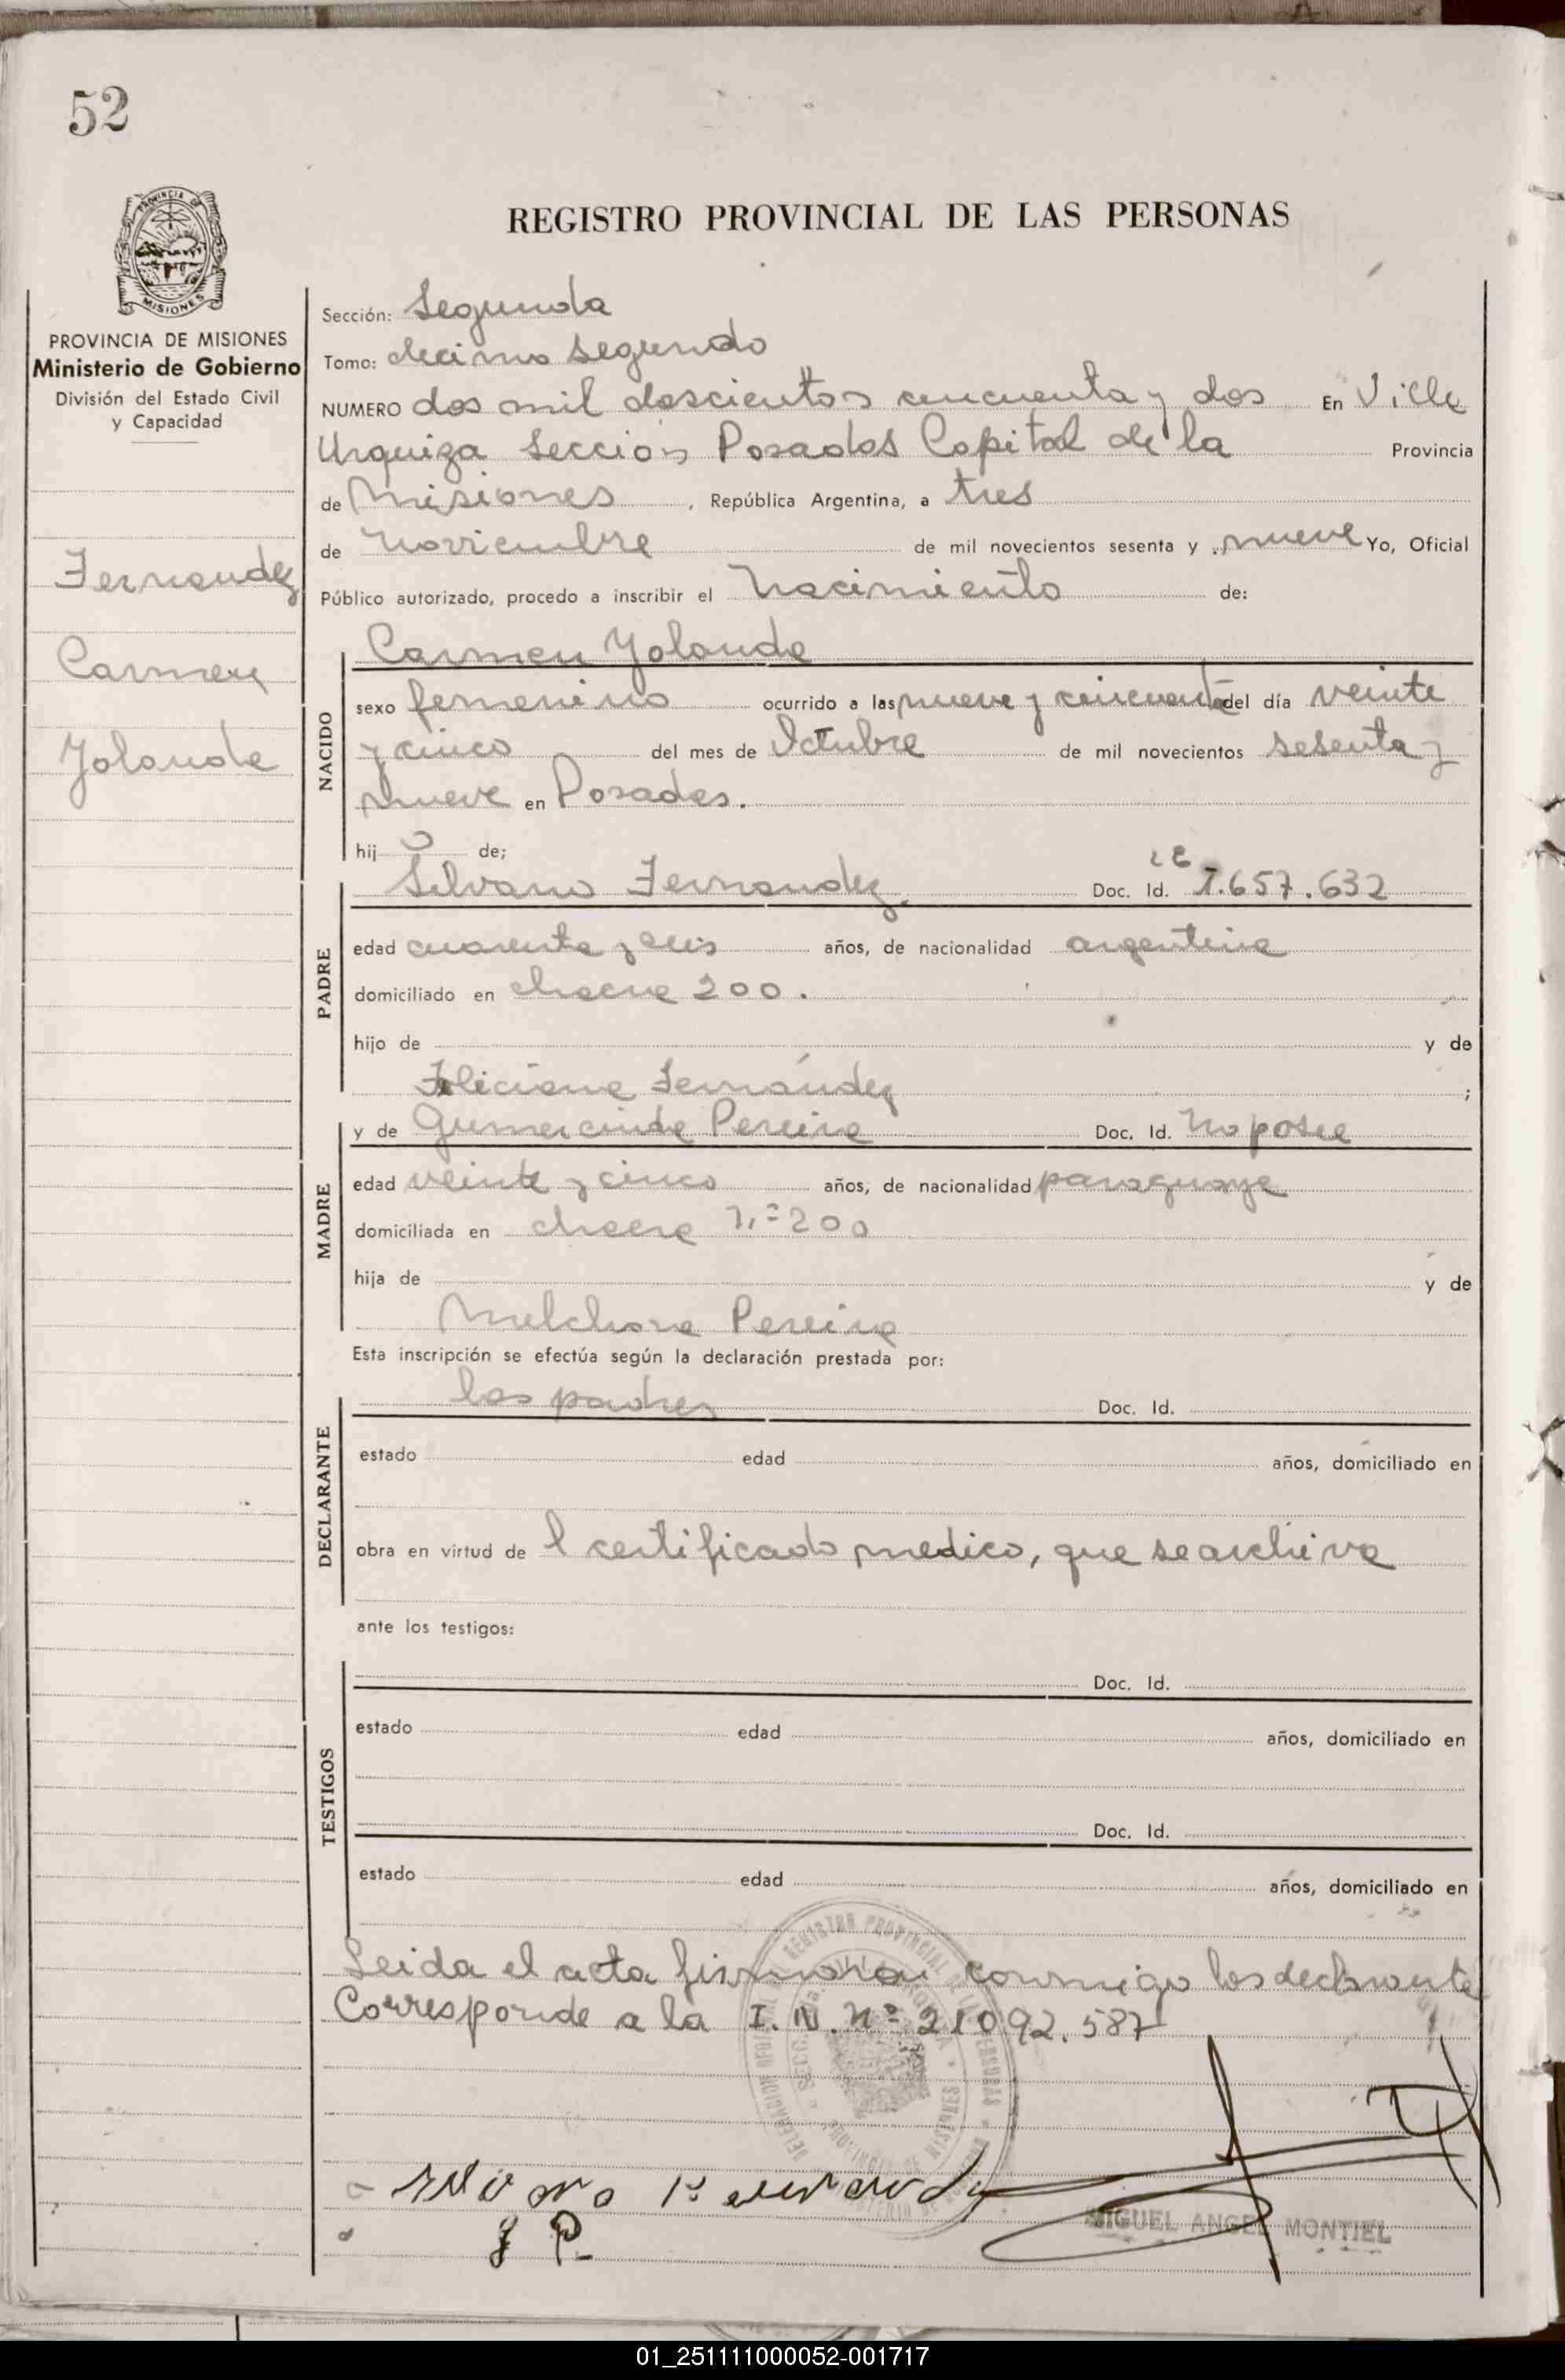 52
PROVINCIA DE
MISIONES
PROVINCIA DE MISIONES
Ministerio de Gobierno
División del Estado Civil
y Capacidad
Fernandez
Carmen
Yolanda
REGISTRO PROVINCIAL DE LAS PERSONAS
Sección: Segunda
Tomo: decimo segundo
NUMERO dos mil doscientos cincuenta y dos En Villa
Urquiza Sección Posadas Capital de la Provincia
de Misiones, República Argentina, a tres
de noviembre de mil novecientos sesenta y nueve Yo, Oficial
Público autorizado, procedo a inscribir el Nacimiento de:
Carmen Yolanda
NACIDO
sexo femenino ocurrido a las nueve y cincuenta del día veinte
y cinco del mes de Octubre de mil novecientos sesenta y
nueve en Posadas.
hij a de;
PADRE
Silvano Fernandez Doc. Id. LE 7.657.632
edad cuarenta y seis años, de nacionalidad argentina
domiciliado en chacra 200.
hijo de y de
Feliciana Fernández ;
MADRE
y de Gumercinda Pereira Doc. Id. No posee
edad veinte y cinco años, de nacionalidad paraguaya
domiciliada en chacra Nº 200
hija de y de
Melchora Pereira
Esta inscripción se efectúa según la declaración prestada por:
DECLARANTE
los padres Doc. Id.
estado edad años, domiciliado en
obra en virtud de l certificado medico, que se archiva
ante los testigos:
TESTIGOS
Doc. Id.
estado edad años, domiciliado en
Doc. Id.
estado edad años, domiciliado en
Leida el acta firman conmigo los declarante
Corresponde a la I. N. Nº 21092.587
REGISTRO PROVINCIAL DE LAS PERSONAS
G P.
MIGUEL ANGEL MONTIEL
01_251111000052-001717